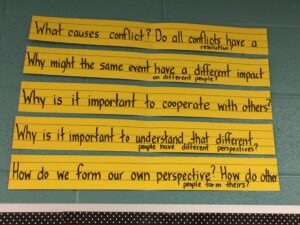 What causes conflict? Do all conflicts have a
resolution?
Why might the same event have a different impact
on different people?
Why is it important to cooperate with others?
Why is it important to understand that different
people have different perspectives?
How do we form our own perspective? How do other
people form theirs?